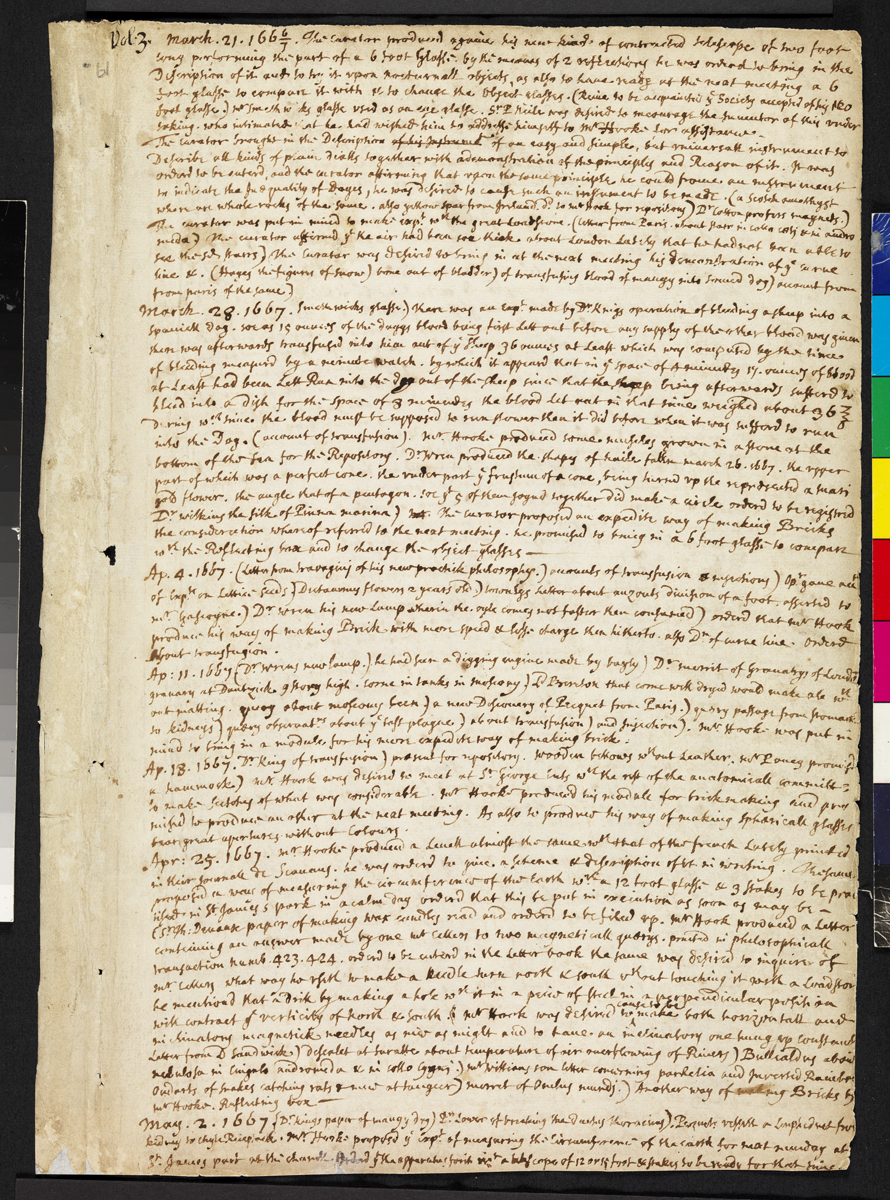 Vol. 3. March. 21. 166 6/7. The Curator produced againe his new kind of contracted telescope of two foot
long performing the part of a 6 foot Glasse by the meanes of 2 reflections he was ordred to bring in the
Description of it and to try it upon nocturnall objects. as also to have ready at the next meeting a 6
foot glasse to compare it with & to change the object glasses. (Reine to be acquainted ye Society accepted of his
foot glasse.) mr Smethwicks glasse used as an eye glasse. Sr P Neile was desired to encourage the Inventor of this under
taking. who intimated that he had wished him to addresse himself to Mr Hooke for assistance.
The Curator brought in the Description of his Instrument of an easy and simple, but universall instrument to
Describe all kinds of plain dialls together with a demonstration of the principles and Reason of it. It was
ordred to be entred, and the curator affirming that upon the same principle he could frame an instrument
to indicate the Inequality of Dayes, he was desired to cause such an instrument to be made. (a Scotch amethyst
where are whole rocks of the same. also yellow spar from Ireland. do. to mr Hook for repository) Dr Cotton profers magnets.)
The curator was put in mind to make expt wth the great Loadstone. (Letter from Paris. about starr in collo ceti & in andro
meda) The curator affirmd yt the air had been soe thick about London Lately that he had not been able to
see the sd starrs) The Curator was desired to bring in at the next meeting his demonstration of ye curve
line &. (Hayes the figures of snow) bone out of bladder) of transfusing blood of mangy into sound dog) account from
from paris of the same)
March. 28. 1667. Smethwicks glasse.) There was an expt made by Dr Kings operation of bleeding a sheep into a
spanish dog. soe as 15 ounces of the doggs blood being first let out before any supply of the other blood was given
there was afterwards transfused into him out of ye sheep 36 ounces at Least which was computed by the time
of bleeding measurd by a minute watch. by which it appeard that in ye space of 4 minutes 17. ounces of blood
at Least had been Lett Run into the dog out of the sheep since that the sheep being afterwards sufferd to
bleed into a dish for the space of 3 minutes the blood Let out in that time weighed about 36
During wch time the blood must be supposed to run slower than it did before when it was sufferd to run
into the Dog. (account of transfusion). Mr. Hooke produced some muscles grown in a stone at the
bottom of the sea for the Repository. Dr Wren produced the shapes of haile fallen march 26. 1667. the upper
part of which was a perfect cone. the under part ye frustum of a cone, being turnd up the represented a mari
gold flower. the angle that of a pentagon. soe yt 5 of them joynd together did make a circle orderd to be registred
Dr wilkins the silk of Pinna marina) The Curator proposed an expedite way of making Bricks
the consideration whereof referred to the next meeting. he promised to bring in a 6 foot glasse to compare
wth the Reflecting box and to change the object glasses
Ap. 4. 1667. (Letter from travagini of his new practick philosophy.) accounts of transfusion & injections) Opt. gave acct
of expt on Lettice seeds) Dictamnus flowers 2 years old) townlys Letter about auzouts division of a foot. asserted to
mr. Gascoyne.) Dr wren his new Lamp wherein the oyle comes not faster then consumed) orderd that mr Hook
produce his way of making Brick with more speed & lesse charge then hitherto. also Dr of curve line. Orderd
about transfusion.
Ap. 11. 1667 (Dr wrens new lamp.) he had seen a digging engine made by bayly) Dr merrit of Granarys of London
granary at Dantzick 9 story high. some in tanks in moscovy) Ld Brereton that corne wch dryed would make ale wth
out malting. query about moscovy been) a new Discovery of Pecquet from Paris.) query passage from stomack
to kidneys) query observatns about ye last plague.) about transfusion) and Injection). Mr. Hook was put in
mind to bring in a module for his more expedite way of making brick.
Ap. 18. 1667. Dr King of transfusion) present for repository. wooden bellows wthout Leather. mr Povey promisd
a hammock) mr Hook was desired to meet at Sr George Ents wth the rest of the anatomicall committee
to make sections of what was considerable. mr Hooke produced his module for brickmaking and pro
mised to produce an other at the next meeting. As also to produce his way of making sphæricall glasses
bear great apertures without Colours.
Apr. 25. 1667. mr Hooke produced a Levell almost the same wth that of the french Lately printed
in their Journale de Scavans. he was orderd to give a scheme & description of it in writing. The same
proposed a way of measuring the circumference of the Earth wth a 12 foot glasse & 3 stakes to be prac
tised in St James's park in a calm day orderd that this be put in execution as soon as may be
paper of making wax candles read and orderd to be filed up. mr Hook produced a Letter
containing an answer made by one mr Cellers to two magneticall querys. printed in philosophicall
transaction numb. 423. 424. orderd to be entred in the Letter book the same was desired to inquire of
mr. Cellers what way he usth to make a Needle turn north & south wthout touching it with a Loadston
he mentiond that a Drik by making a hole wth it in a peice of steel in a perpendicular position
wth contract ye verticity of North & south. mr. Hook was desired cause to be make both horizontall and
inclinatory magnetick needles as nice as might and to have an inclinatory one hung up constantly
Letter from Ld Sandwich) Descalet at suratte about temperature of air overflowing of Rivers) Bullialdus about
nebulosa in Cingulo andromeda & in collo Cygni.) mr Williamson letter concerning parhelia and Inversed Rainbow
Oudarts of snakes catching rats & mice at tangeer) merret of Oculus mundi.) Another way of making Bricks by
mr Hooke. Reflecting box
May. 2. 1667 (Dr Kings paper of mangy dog) Dr Lower of breaking the Ductus thoracius). Pecquets vessell a Lumbis not from
kidney to chyle Receptacle. mr Hooke proposed ye expt of measuring the Circumference of the earth for next munday at
St. James park at the channell. Orderd yt the apparatus for it viz. a telescope of 12 or 15 foot & stakes to be ready for that time.